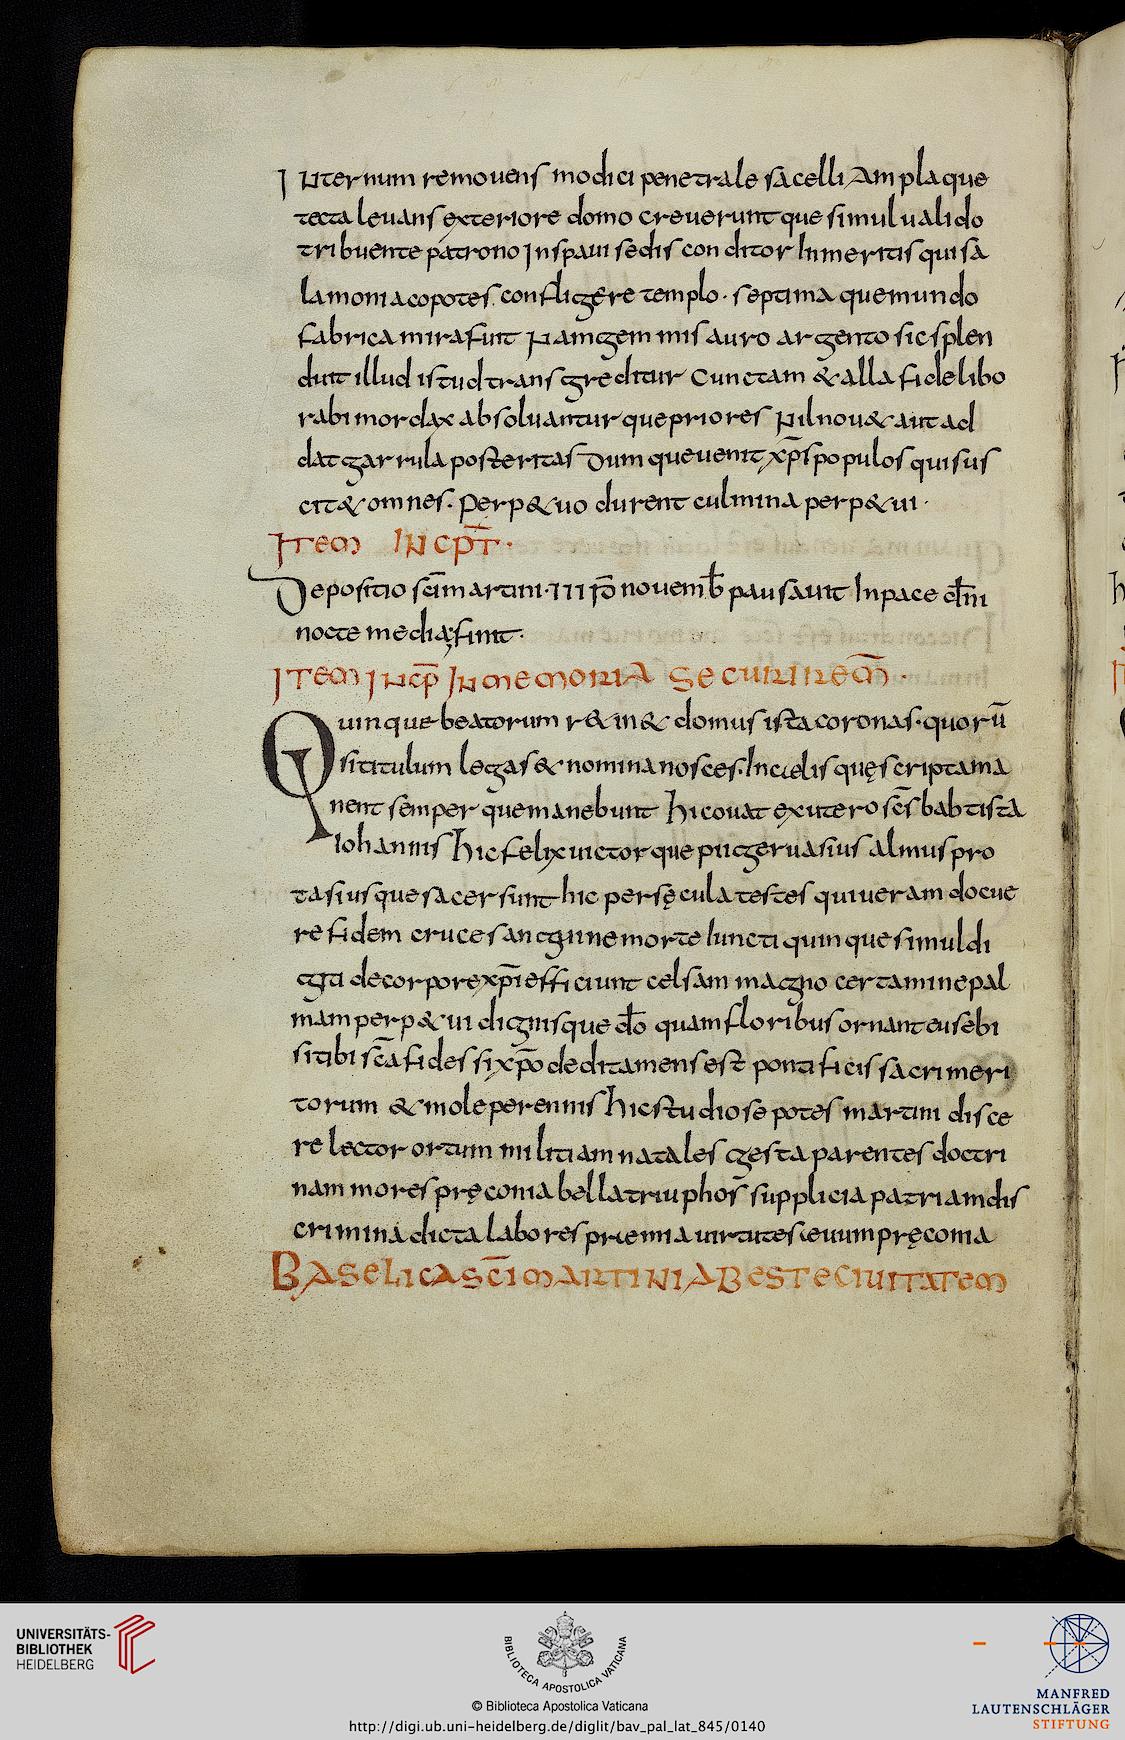 Internum remouens modici penetrale sacelli Amplaque
tecta leuans exteriore domo creueruntque simul ualido
tribuente patrono Inspaui sedis conditor Inmeritis qui sa
lamoniaco potes confligere templo · septima quem undo
fabrica mira fuit Nam gemmis auro argento sic splen
duit illud istud transgreditur cunctam & alla fidelibo
rabi mordax absoluanturque priores Nil nou& aut ad
dat garrula posteritas Dumque uenit xp̄s populos qui sus
cit& omnes · Perp&uo durent culmina perp&ui ·
Item INCPT̄ ·
Depositio sc̄i martini · III ID̄ nouemb̄ pausauit Inpace dn̄i
nocte media; finit ·
ITEM INCP̄ IN MEMORIA SECURI REM̄ ·
Quinque beatorum r&in& domus ista coronas · quorū
si titulum legas & nomina nosces · Incidis quę scripta ma
nent semperque manebunt hic ouat ex utero sc̄s babtista
iohannis hic felix uictorque pii geruasius almus pro
tasiusque sacer sunt hic persęcula testes qui ueram docue
re fidem cruce sanguine morte Iuncti quinque simul di
giti de corpore xp̄i efficiunt celsam magno certamine pal
mam perp&ui dignisque dō quam floribus ornant eusebi
si tibi sc̄a fides si xp̄o dedita mens est pontificis sacri meri
torum & mole perennis hic studiose potes martini disce
re lector ortum militiam natales gesta parentes doctri
nam mores pręconia bella triuphos supplicia patriam dis
crimina dicta labores priemia uirtutes euum pręconia
BASELICA SC̄I MARTINI ABEST E CIUITATEM
UNIVERSITÄTS-
BIBLIOTHEK
HEIDELBERG
BIBLIOTECA APOSTOLICA VATICANA
© Biblioteca Apostolica Vaticana
http://digi.ub.uni-heidelberg.de/diglit/bav_pal_lat_845/0140
MANFRED
LAUTENSCHLÄGER
STIFTUNG